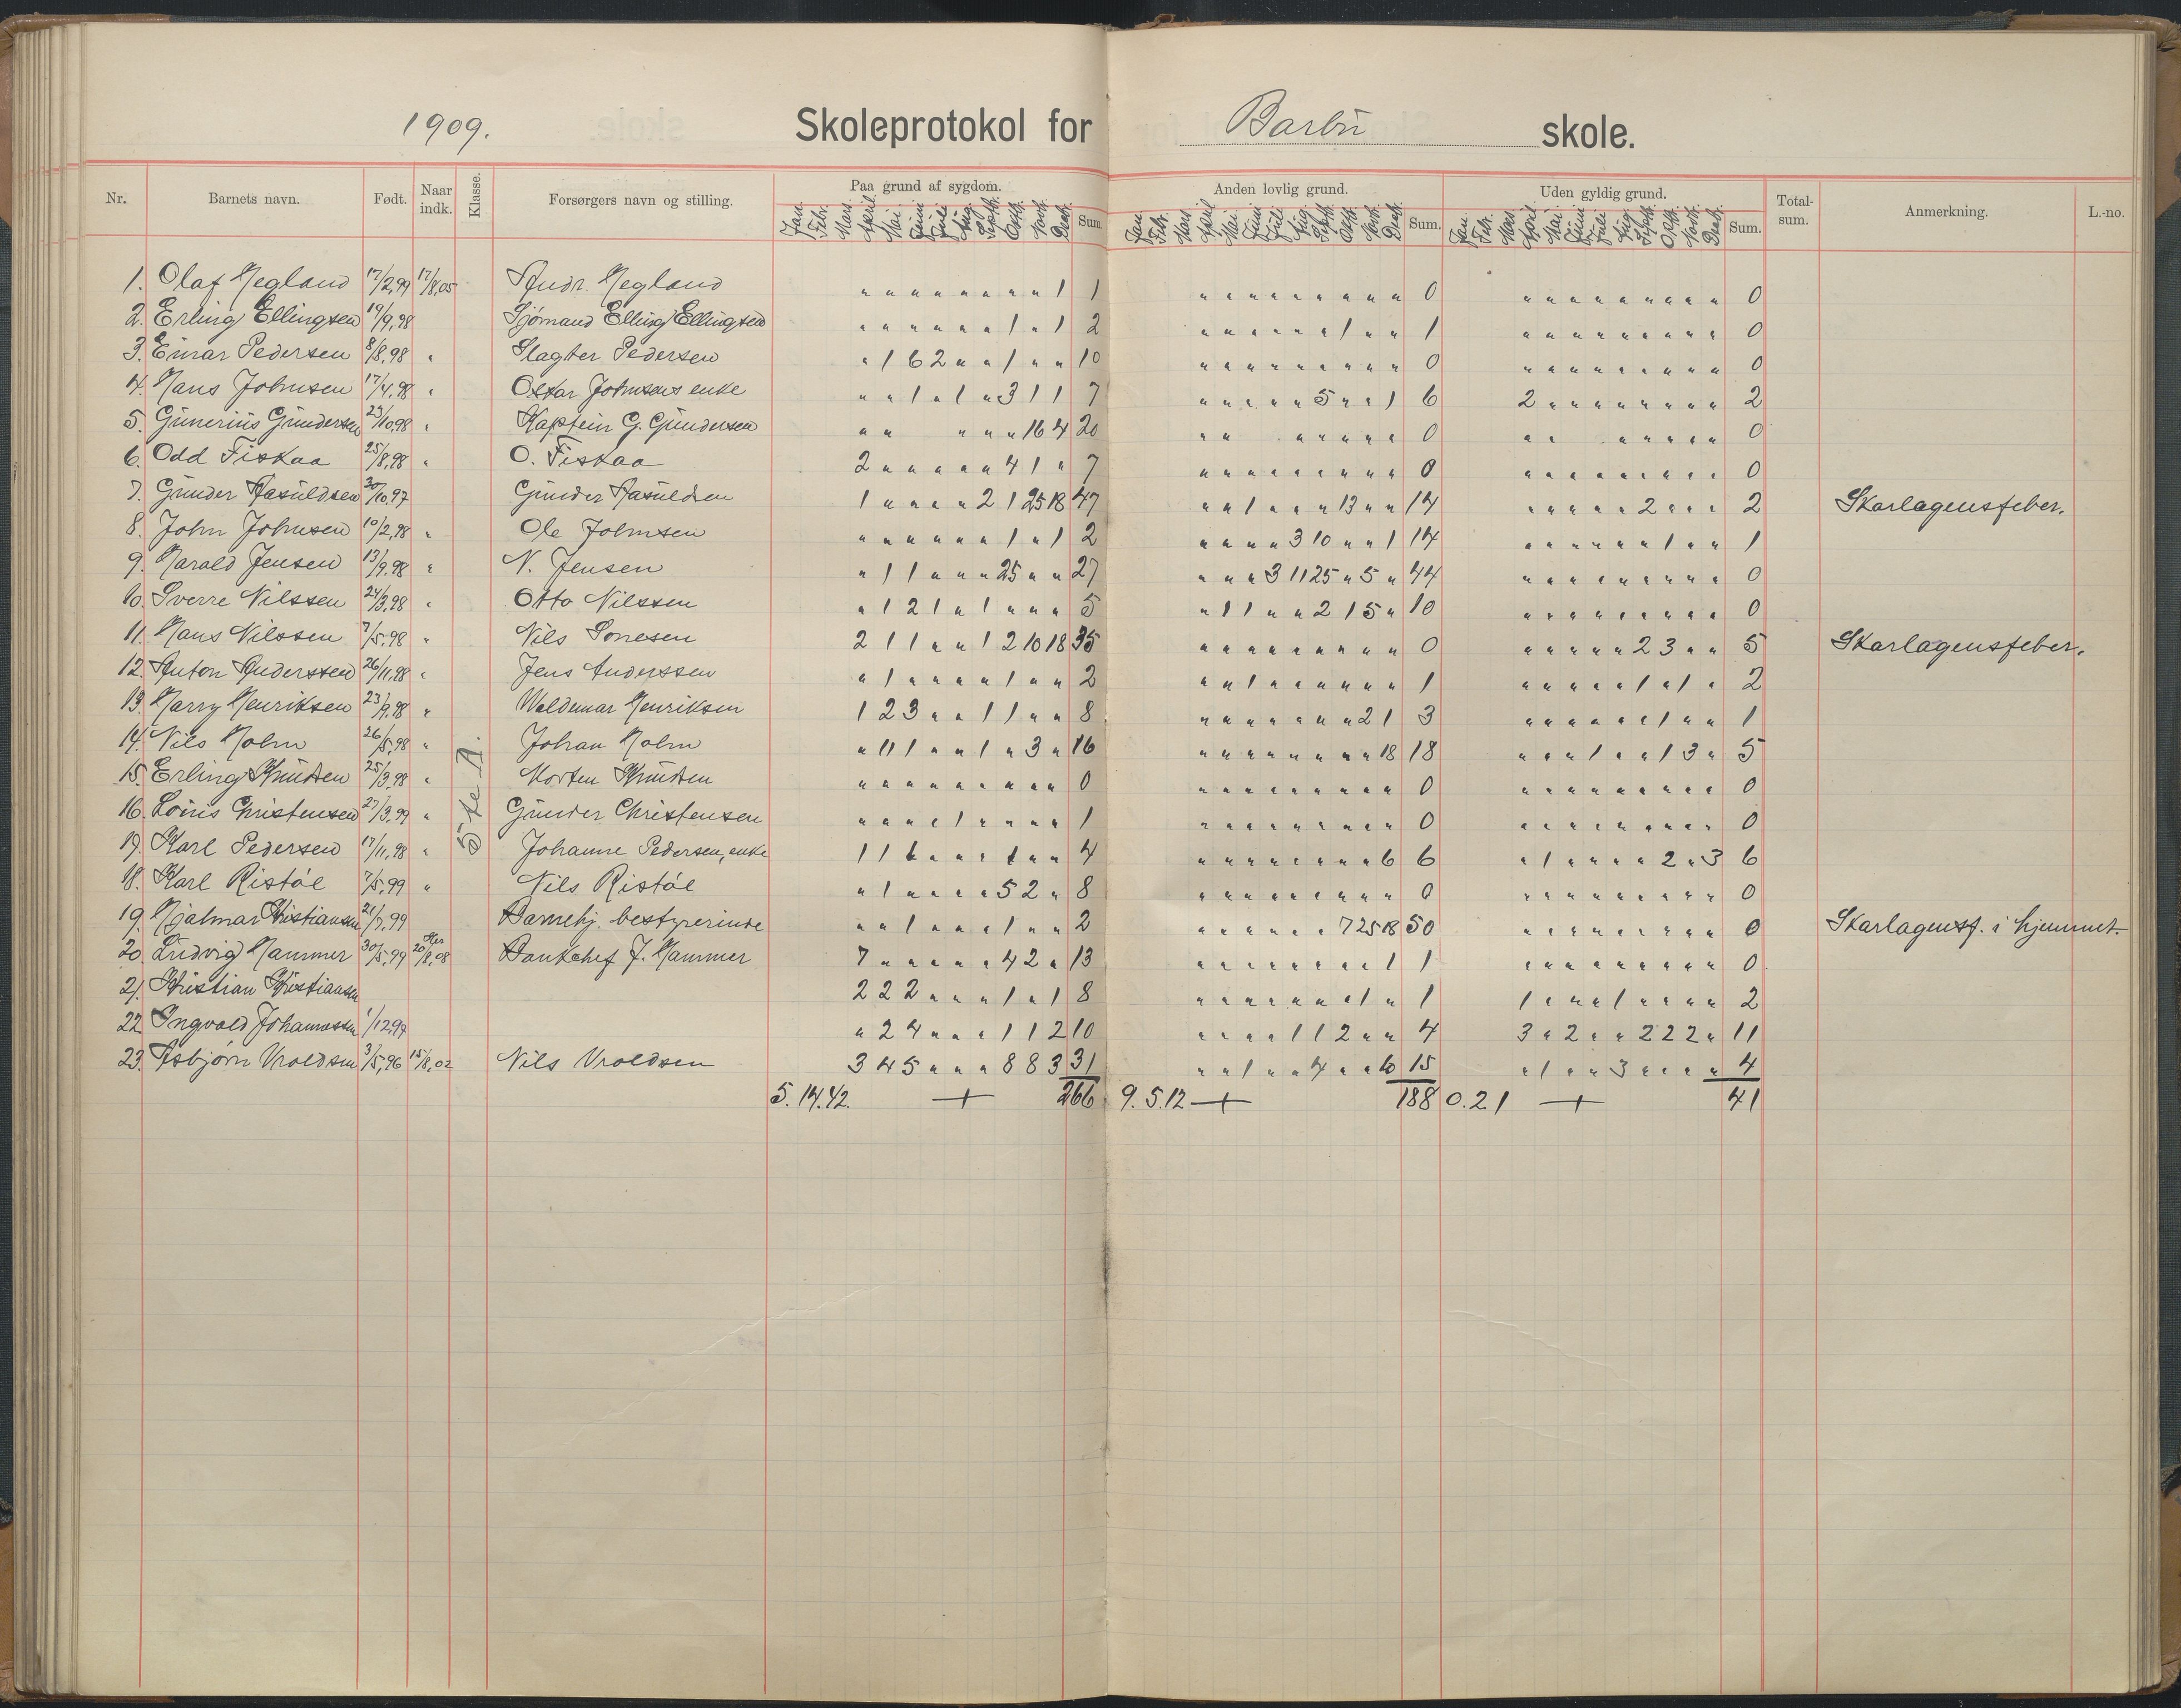 1909. Skoleprotokol for Barbu skole.
Nr. Barnets navn. Født. Naar indk. Klasse. Forsørgers navn og stilling. Paa grund af sygdom. Anden lovlig grund. Uden gyldig grund. Total-sum. Anmerkning. L.-no.
Jan. Febr. Mars. April Mai Juni Juli Aug. Septb. Oktb. Novb. Decbr. Sum Jan. Febr. Mars April Mai Juni Juli Aug. Septb. Oktb. Novb. Decbr. Sum. Jan. Febr. Mars April Mai Juni Juli Aug. Septb. Oktb. Novb. Decbr. Sum.
1. Olaf Hegland 17/2,99 17/8,05 Andr. Hegland " " " " " " " " 1 1 " " " " " " " " " 0 " " " " " " " " " 0
2. Erling Ellingsen 19/9,98 Sjømand Elling Ellingsen " " " " " " 1 " 1 2 " " " " " " 1 " " 1 " " " " " " " " " 0
3. Einar Pedersen 8/8,98 " Slagter Pedersen " 1 6 2 " " 1 " " 10 " " " " " " " " " 0 " " " " " " " " " 0
4. Hans Johnsen 17/4,98 " Oskar Johnsens enke " " 1 " 1 " 3 1 1 7 " " " " " 5 " " 1 6 2 " " " " " " " " 2
5. Gunerius Gundersen 23/10,98 " Kaptein G. Gundersen " " " " " 16 4 20 " " " " " " " 0 " " " " " " " 0
6. Odd Fiskaa 25/8,98 " O. Fiskaa 2 " " " " " 4 1 " 7 " " " " " " " " " 0 " " " " " " " " " 0
7. Gunder Aasuldsen 30/10,97 Gunder Aasuldsen 1 " " " " 2 1 25 18 47 " " 1 " " " 13 " " 14 " " " " " 2 " " " 2 Skarlagensfeber.
8. John Johnsen 10/2,98 " Ole Johnsen " " " " " " 1 " 1 2 " " " " 3 10 " " 1 14 " " " " " " 1 " " 1
9. Harald Jensen 13/9,98 " N. Jensen " 1 1 " " " 25 " " 27 " " " 3 11 25 " 5 " 44 " " " " " " " " " 0
10. Sverre Nilssen 24/3,98 " Otto Nilssen " 1 2 1 " 1 " " " 5 " 1 1 " " 2 1 5 " 10 " " " " " " " " " 0
11. Hans Nilssen 7/5,98 " Nils Sonesen 2 1 1 " " 1 2 10 18 35 " " " " " " " " " 0 " " " " " 2 3 " " 5 Skarlagensfeber.
12. Anton Anderssen 26/11,98 " Jens Anderssen " 1 " " " " 1 " " 2 " " 1 " " " " " " 1 " " " " " 1 " 1 " 2
13. Harry Henriksen 23/9,98 " Waldemar Henriksen 1 2 3 " " 1 1 " " 8 " " " " " " " 2 1 3 " " " " " " 1 " " 1
14. Nils Holm 26/5,98 " Johan Holm " 11 1 " " 1 " 3 " 16 " " " " " " " " 18 18 " " " 1 " " 1 3 " 5
15. Erling Knudsen 25/3,98 " Morten Knudsen " " " " " " " " " 0 " " " " " " " " " 0 " " " " " " " " " 0
5te A.
16. Louis Christensen 27/3,99 " Gunder Christensen " " " " 1 " " " " 1 " " " " " " " " " 0 " " " " " " " " " 0
17. Karl Pedersen 17/11,98 " Johanne Pedersen, enke 1 1 1 " " " 1 " " 4 " " " " " " " " 6 6 " 1 " " " " 2 " 3 6
18. Karl Ristøl 7/5,99 " Nils Ristøl " 1 " " " " 5 2 " 8 " " " " " " " " " 0 " " " " " " " " " 0
19. Hjalmar Kristiansen 21/7,99 Barnehj. bestyrerinde " " 1 " " " 1 " " 2 " " " " " " 7 25 18 50 " " " " " " " " " 0 Skarlagensf. i hjemmet.
20. Ludvig Hammer 30/5,99 Her 20/8,08 Bankchef J. Hammer 7 " " " " " 4 2 " 13 " " " " " " " " 1 1 " " " " " " " " " 0
21. Kristian Kristiansen 2 2 2 " " " 1 " 1 8 " " " " " " " 1 " 1 1 " " " 1 " " " " 2
22. Ingvald Johannessen 1/12,97 " 2 4 " " " 1 1 2 10 " " " " 1 1 2 " " 4 3 " 2 " " 2 2 2 " 11
23. Asbjørn Vroldsen 3/5,96 15/8,02 Nils Vroldsen 3 4 5 " " " 8 8 3 31 " " 1 " " 4 " " 10 15 " 1 " " 3 " " " " 4
5. 14.42. + 266 9. 5.12 + 188 0.21 + 41